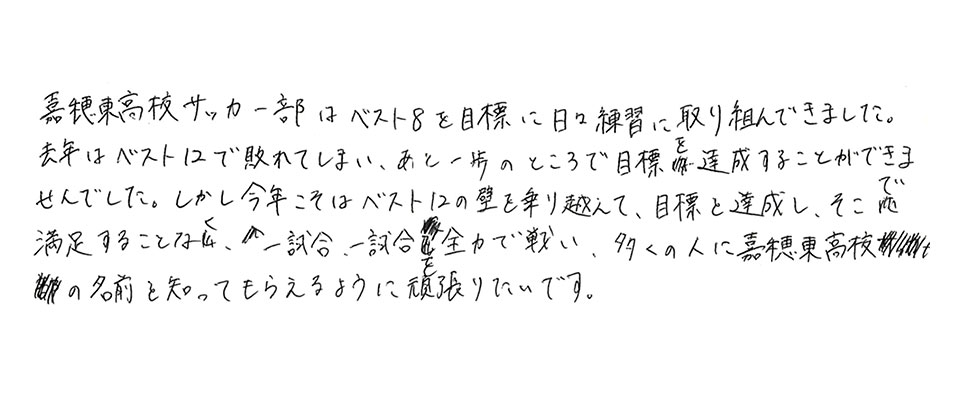 嘉穂東高校サッカー部はベスト8を目標に日々練習に取り組んできました。
去年はベスト12で敗れてしまい、あと一歩のところで目標を達成することができま
せんでした。しかし今年こそはベスト12の壁を乗り越えて、目標を達成し、そこで
満足することなく、一試合、一試合を全力で戦い、多くの人に嘉穂東高校
の名前を知ってもらえるように頑張りたいです。